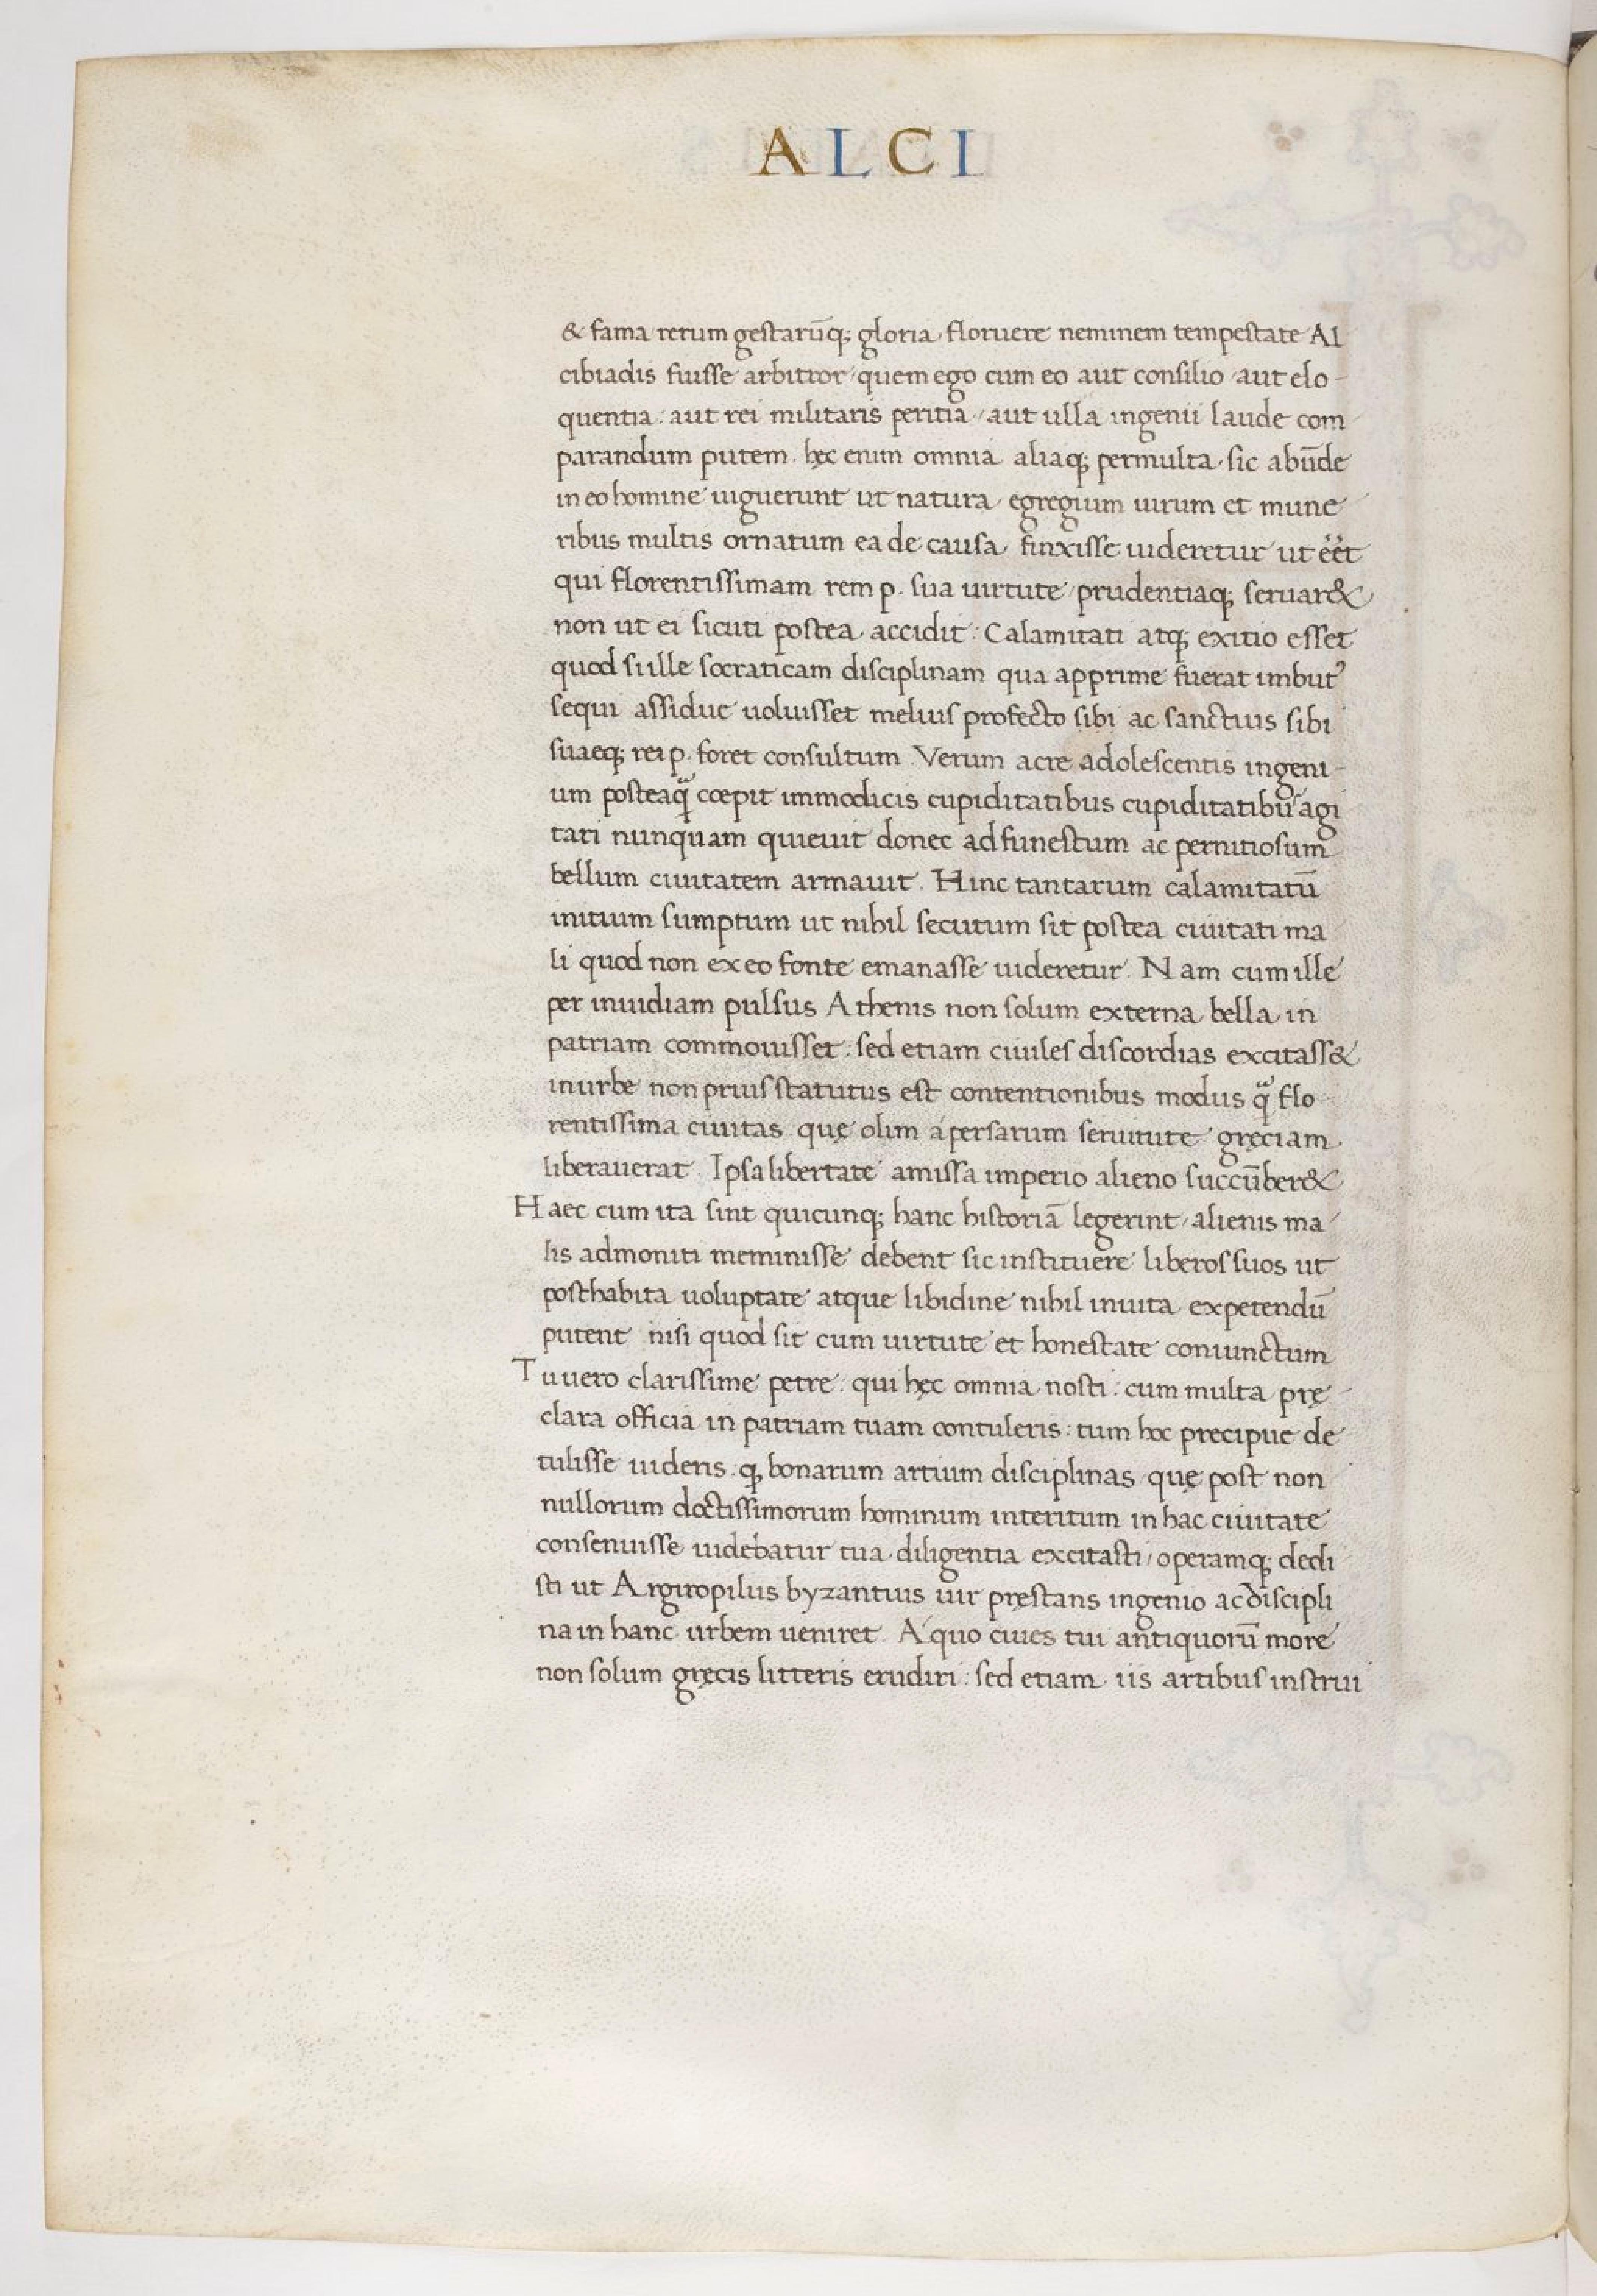 ALCI
& fama rerum gestarūq; gloria floruere neminem tempestate Al
cibiadis fuisse arbitror quem ego cum eo aut consilio aut elo-
quentia: aut rei militaris peritia aut ulla ingenii laude com
parandum putem. hęc enim omnia aliaq; permulta sic abūde
in eo homine uiguerunt ut natura egregium uirum et mune
ribus multis ornatum ea de causa finxisse uideretur ut ēēt
qui florentissimam rem p. sua uirtute prudentiaq; seruar&
non ut ei sicuti postea accidit: Calamitati atq; exitio esset
quod si ille socraticam disciplinam qua apprime fuerat imbutꝰ
sequi assidue uoluisset melius profecto sibi ac sanctius sibi
suaeq; rei p. foret consultum. Verum acre adolescentis ingeni-
um posteaq̃ cœpit immodicis cupiditatibus cupiditatibus agi
tari nunquam quieuit donec ad funestum ac pernitiosum
bellum ciuitatem armauit. Hinc tantarum calamitatū
initium sumptum ut nihil secutum sit postea ciuitati ma
li quod non ex eo fonte emanasse uideretur. Nam cum ille
per inuidiam pulsus Athenis non solum externa bella in
patriam commouisset: sed etiam ciuiles discordias excitass&
in urbe non prius statutus est contentionibus modus q̃ flo
rentissima ciuitas quę olim á persarum seruitute gręciam
liberauerat. Ipsa libertate amissa imperio alieno succūber&
Haec cum ita sint quicunq; hanc historiā legerint, alienis ma
lis admoniti meminisse debent sic instituere liberos suos ut
posthabita uoluptate atque libidine nihil in uita expetendū
putent nisi quod sit cum uirtute et honestate coniunctum
Tu uero clarissime petre: qui hęc omnia nosti: cum multa prę-
clara officia in patriam tuam contuleris: tum hoc precipue de
tulisse uideris. ꝙ bonarum artium disciplinas quę post non
nullorum doctissimorum hominum interitum in hac ciuitate
consenuisse uidebatur tua diligentia excitasti, operamq; dedi
sti ut Argiropilus byzantius uir pręstans ingenio ac discipli
na in hanc urbem ueniret. A quo ciues tui antiquorū more
non solum gręcis litteris erudiri: sed etiam iis artibus instrui